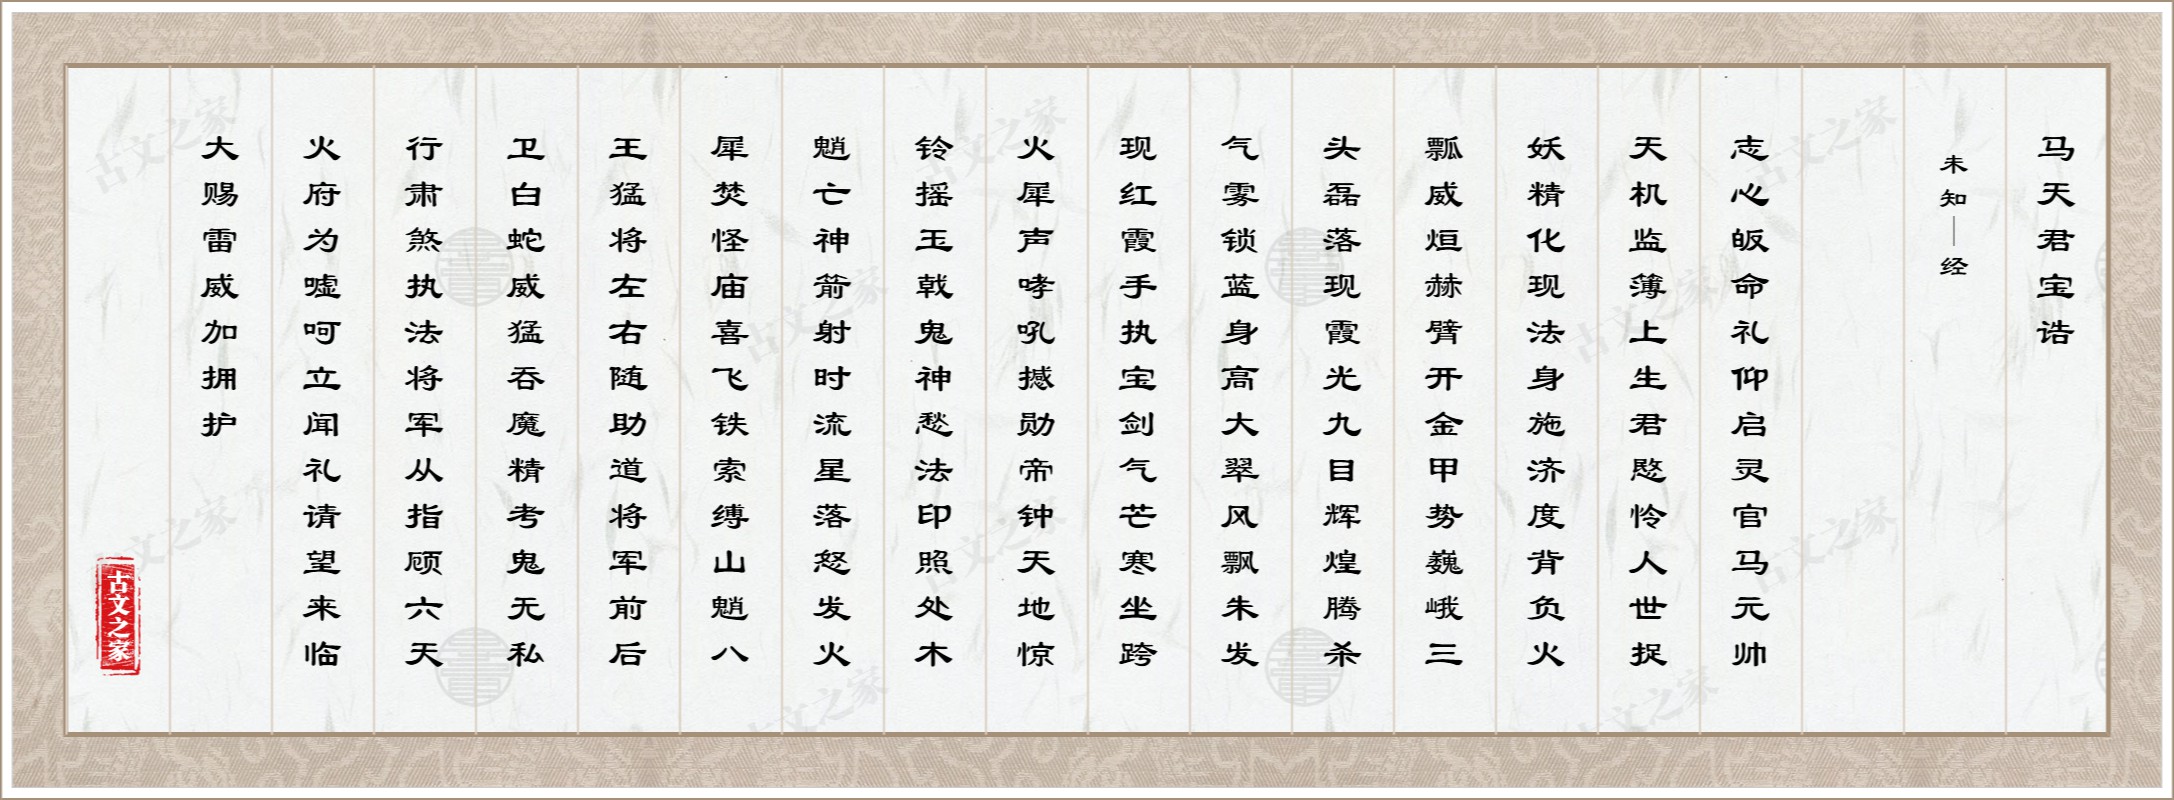 马天君宝诰
未知｜经
志心皈命礼仰启灵官马元帅
天机监薄上生君愍怜人世捉
妖精化现法身施济度背负火
瓢威烜赫臂开金甲势巍峨三
头磊落现霞光九目辉煌腾杀
气雾锁蓝身高大翠风飘朱发
现红霞手执宝剑气芒寒坐跨
火犀声哮吼撼勋帝钟天地惊
铃摇玉戟鬼神愁法印照处木
魈亡神箭射时流星落怒发火
犀焚怪庙喜飞铁索缚山魈八
王猛将左右随助道将军前后
卫白蛇威猛吞魔精考鬼无私
行肃煞执法将军从指顾六天
火府为嘘呵立闻礼请望来临
大赐雷威加拥护
古文之家